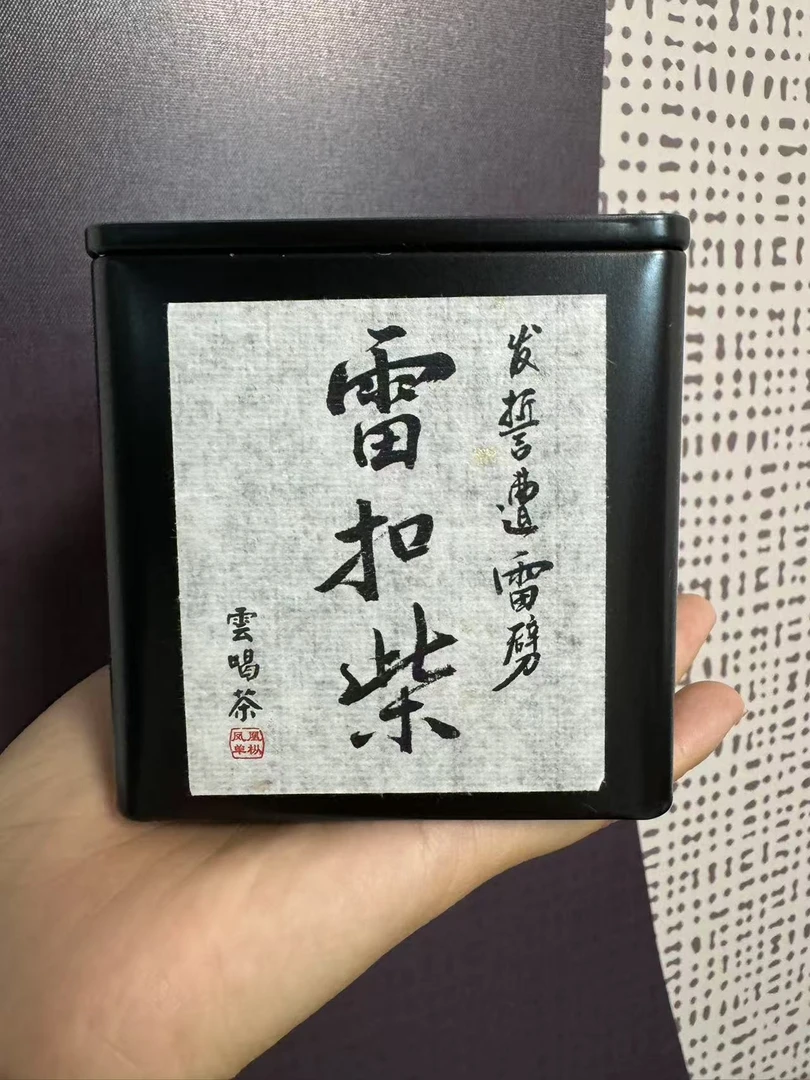 发誓遭雷劈
雷扣柴
雲喝茶
凤凰
单枞